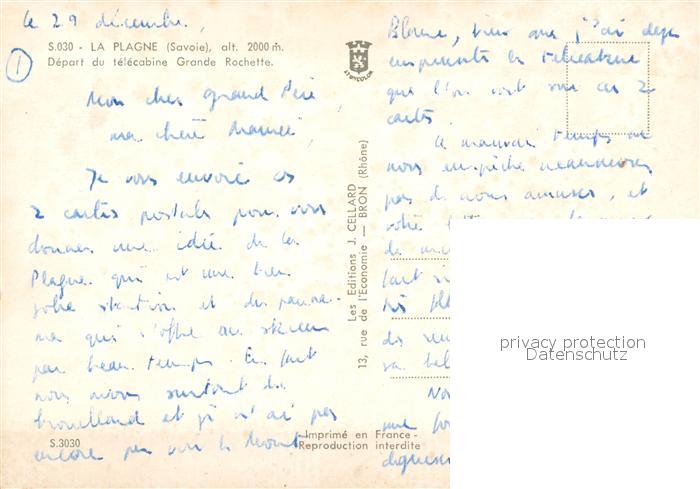 le 29 décembre,
①
S.030 - LA PLAGNE (Savoie), alt. 2000 m.
Départ du télécabine Grande Rochette.
Mon cher Grand Père
ma chère Mamée,
Je vous envoie ces
2 cartes postales pour vous
donner une idée de la
Plagne qui est une bien
jolie station et du panora-
ma qui s'offre au skieur
par beau temps. En fait
nous avons surtout du
brouillard et je n'ai pas
encore pu voir le Mont
S.3030
Imprimé en France -
Reproduction interdite
Les Editions J. CELLARD
13, rue de l'Economie — BRON (Rhône)
Blanc, bien que j'ai déjà
emprunté la télécabine
que l'on voit sur ces 2
cartes.
Le mauvais temps ne
nous empêche néanmoins
pas de nous amuser, et
votre
de
fait
très
des
sa
No
une
privacy protection
Datenschutz